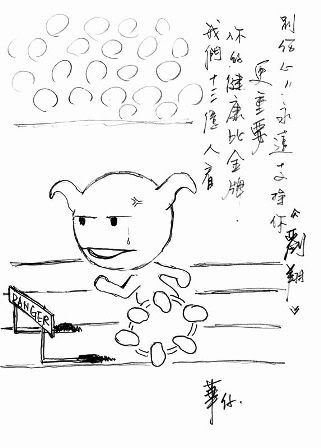 我們十三億人看
你的健康比金牌.
更重要
别伤心!!永遠支持你《劉翔》
DANGER
華仔.